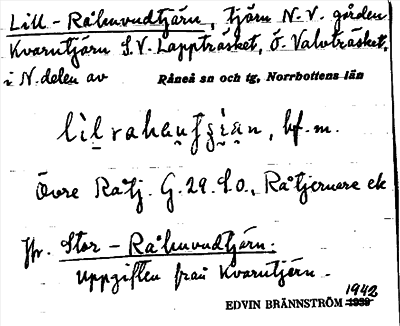 Lill-Råhuvudtjärn, tjärn N.V. gården
Kvarntjärn S.V. Lappträsket, Ö. Valvträsket,
i N.delen av Råneå sn och tg, Norrbottens län
bf. m.
Övre Råtj. G.29. S.O., Råtjernare ek
Jfr. Stor-Råhuvudtjärn.
Uppgiften från Kvarntjärn.
1942
EDVIN BRÄNNSTRÖM 1939